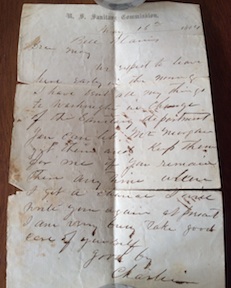 U. S. Sanitary Commission,
18th 1864
Belle Plains
Dear May
We expect to leave
here early in the morning
I have sent all my things
to Washington in charge
of the Sanitary Department
You can let Mr Morgan
get them and keep them
for me if you remain
there any time when
I get a chance I will
write you again
I am very busy take good
care of yourself
Good by
Charlie